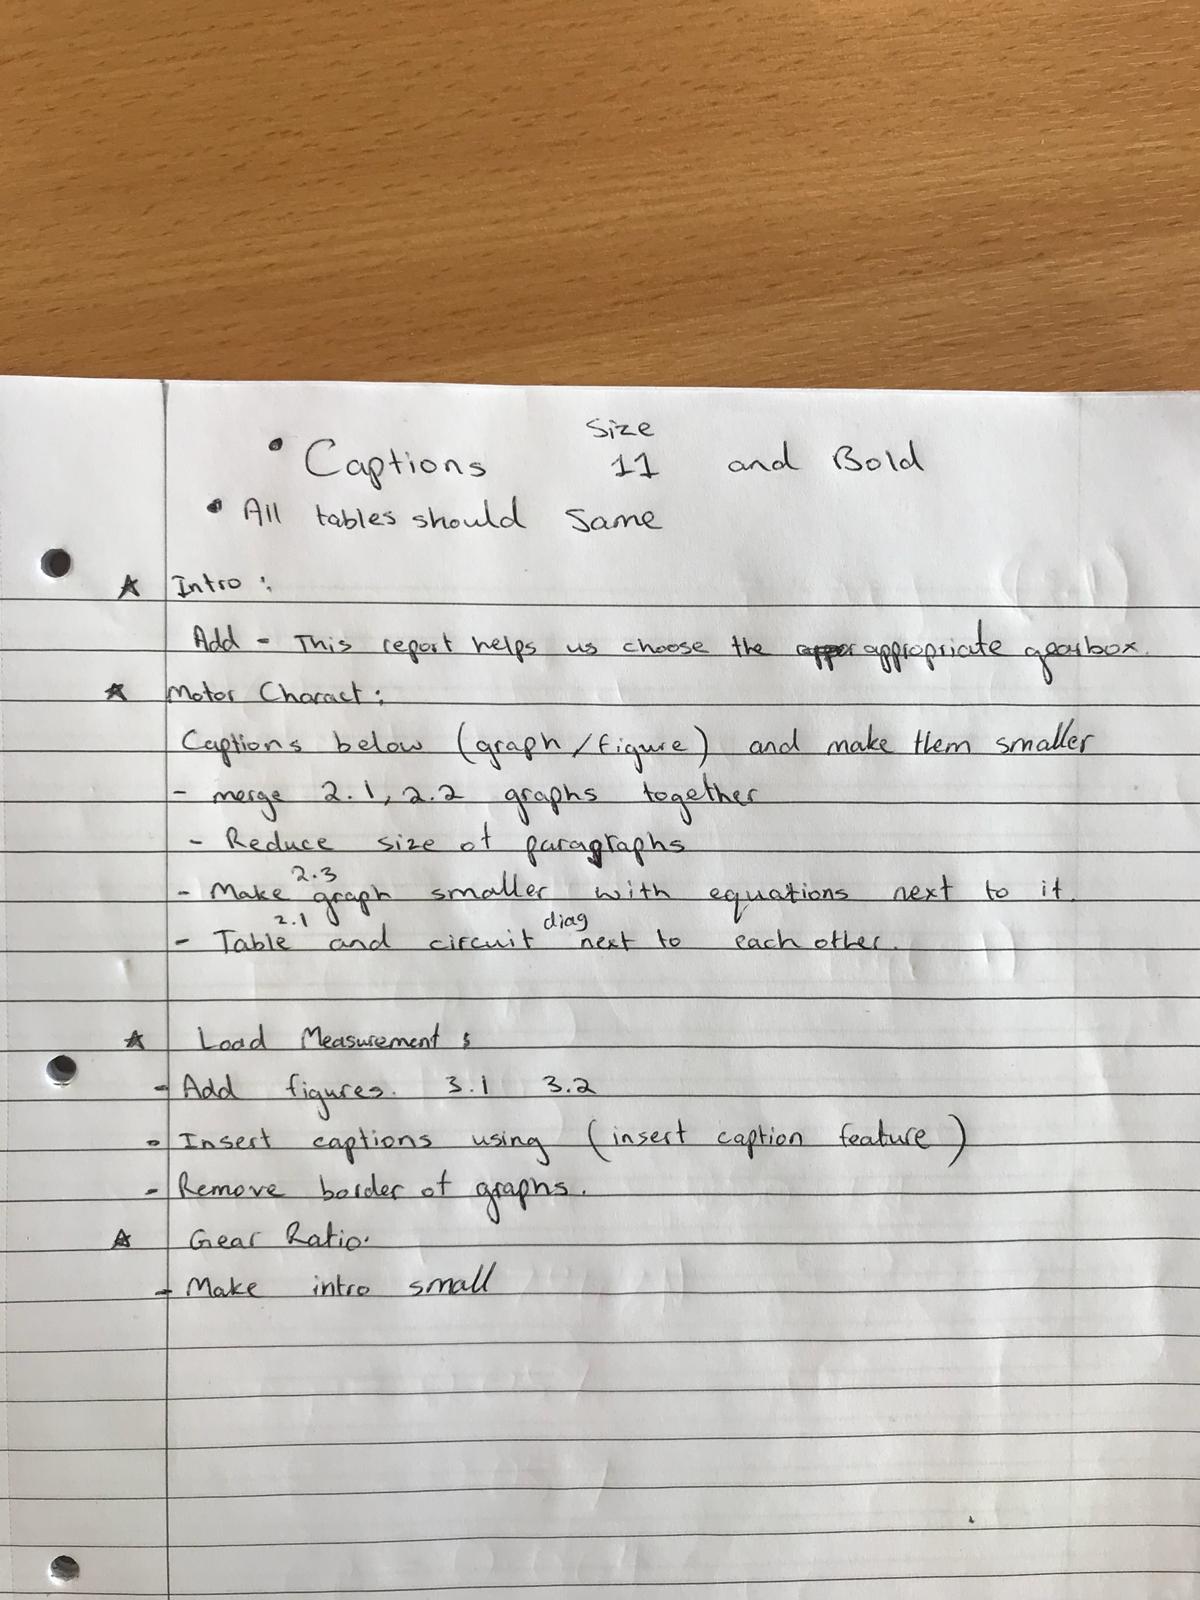 Size
• Captions 11 and Bold
• All tables should Same
☆ Intro :
Add - This report helps us choose the appropriate gearbox.
☆ Motor Charact :
Captions below (graph/figure) and make them smaller
- merge 2.1, 2.2 graphs together
- Reduce size of paragraphs
2.3
- Make graph smaller with equations next to it.
2.1 diag
- Table and circuit next to each other.
☆ Load Measurement :
- Add figures. 3.1 3.2
- Insert captions using (insert caption feature)
- Remove border of graphs.
☆ Gear Ratio.
- Make intro small